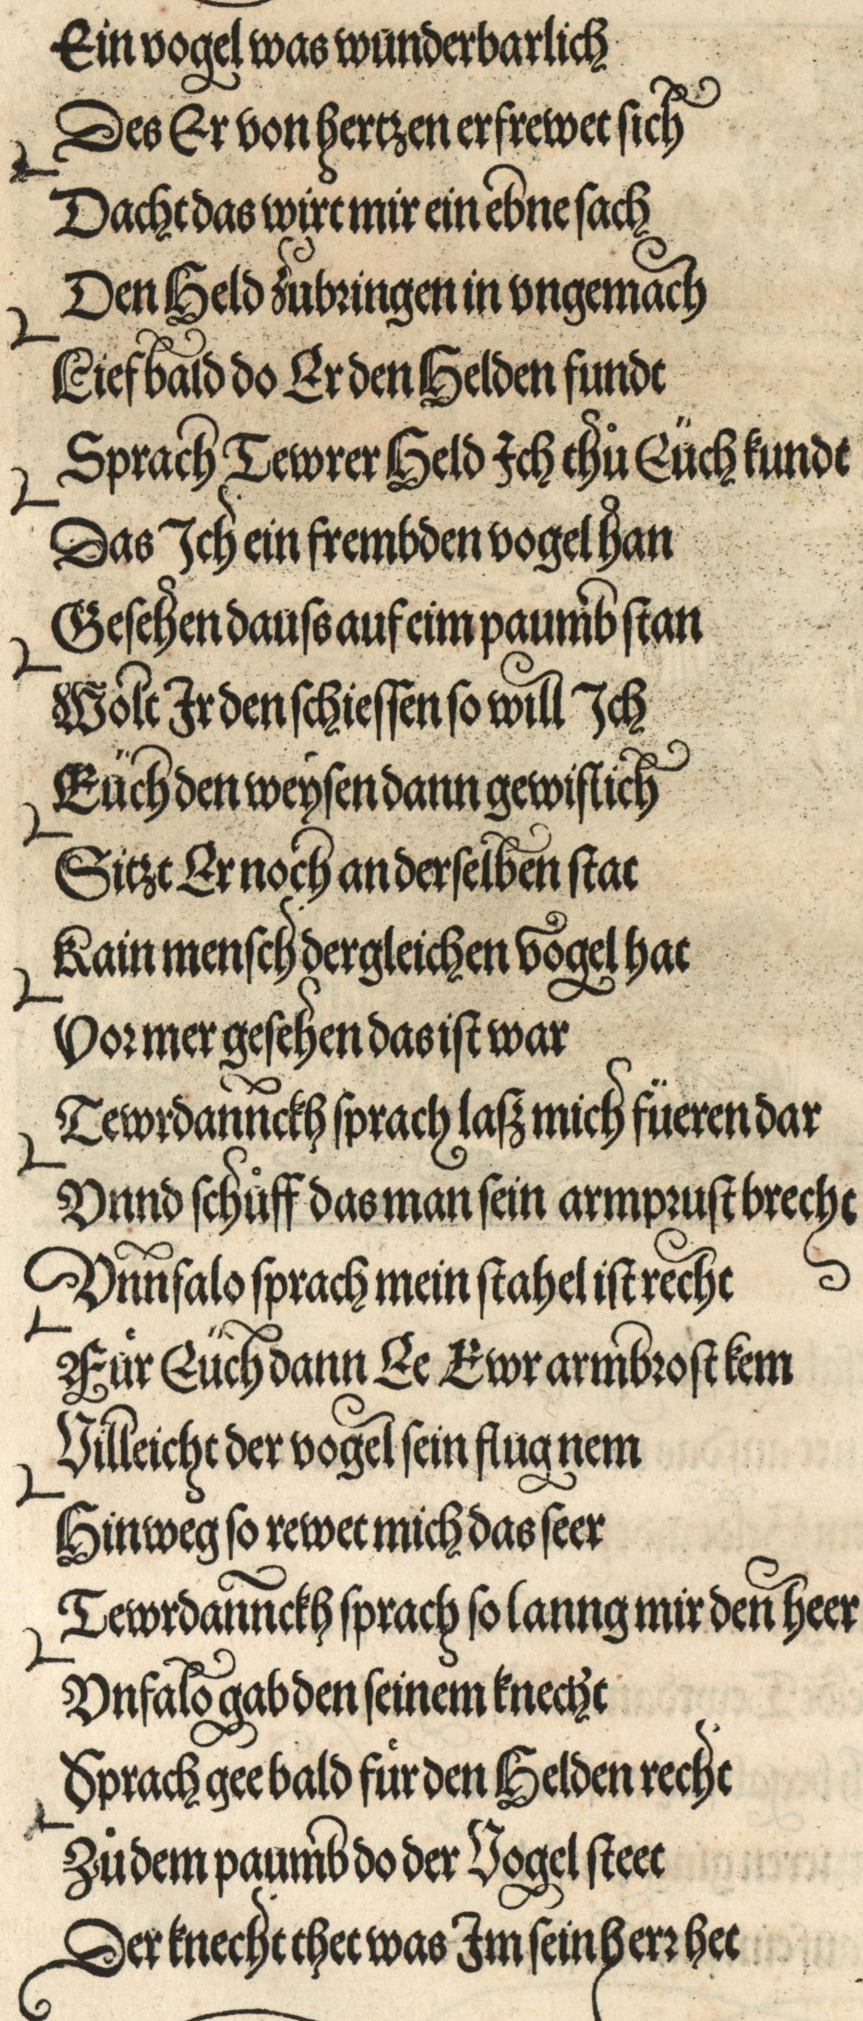 Ein vogel was wunderbarlich
Des Er von hertzen erfrewet sich
Dacht das wirt mir ein ebne sach
Den Held zubringen in vngemach
Lief bald do Er den Helden fundt
Sprach Tewrer Held Ich thů Eüch kundt
Das Ich ein frembden vogel han
Gesehen dauss auf eim paumb stan
Wolt Ir den schiessen so will Ich
Eüch den weysen dann gewislich
Sitzt Er noch an derselben stat
Kain mensch dergleichen vogel hat
Vor mer gesehen das ist war
Tewrdannckh sprach lasz mich füeren dar
Vnnd schůff das man sein armprust brecht
Vnnfalo sprach mein stahel ist recht
Für Eüch dann Ee Ewr armbrost kem
Villeicht der vogel sein flug nem
Hinweg so rewet mich das seer
Tewrdannckh sprach so lanng mir den heer
Vnfalo gab den seinem knecht
Sprach gee bald für den Helden recht
Zů dem paumb do der Vogel steet
Der knecht thet was Im sein herr het